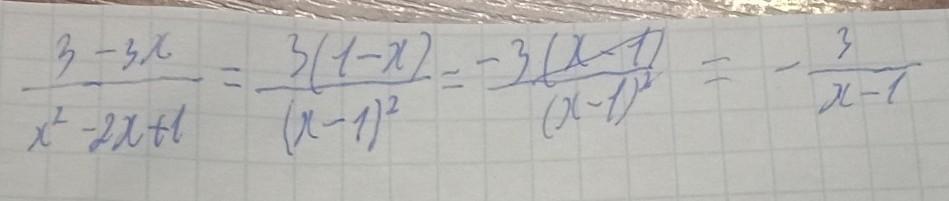 \frac{3-3x}{x^2-2x+1} = \frac{3(1-x)}{(x-1)^2} = \frac{-3(x-1)}{(x-1)^2} = -\frac{3}{x-1}